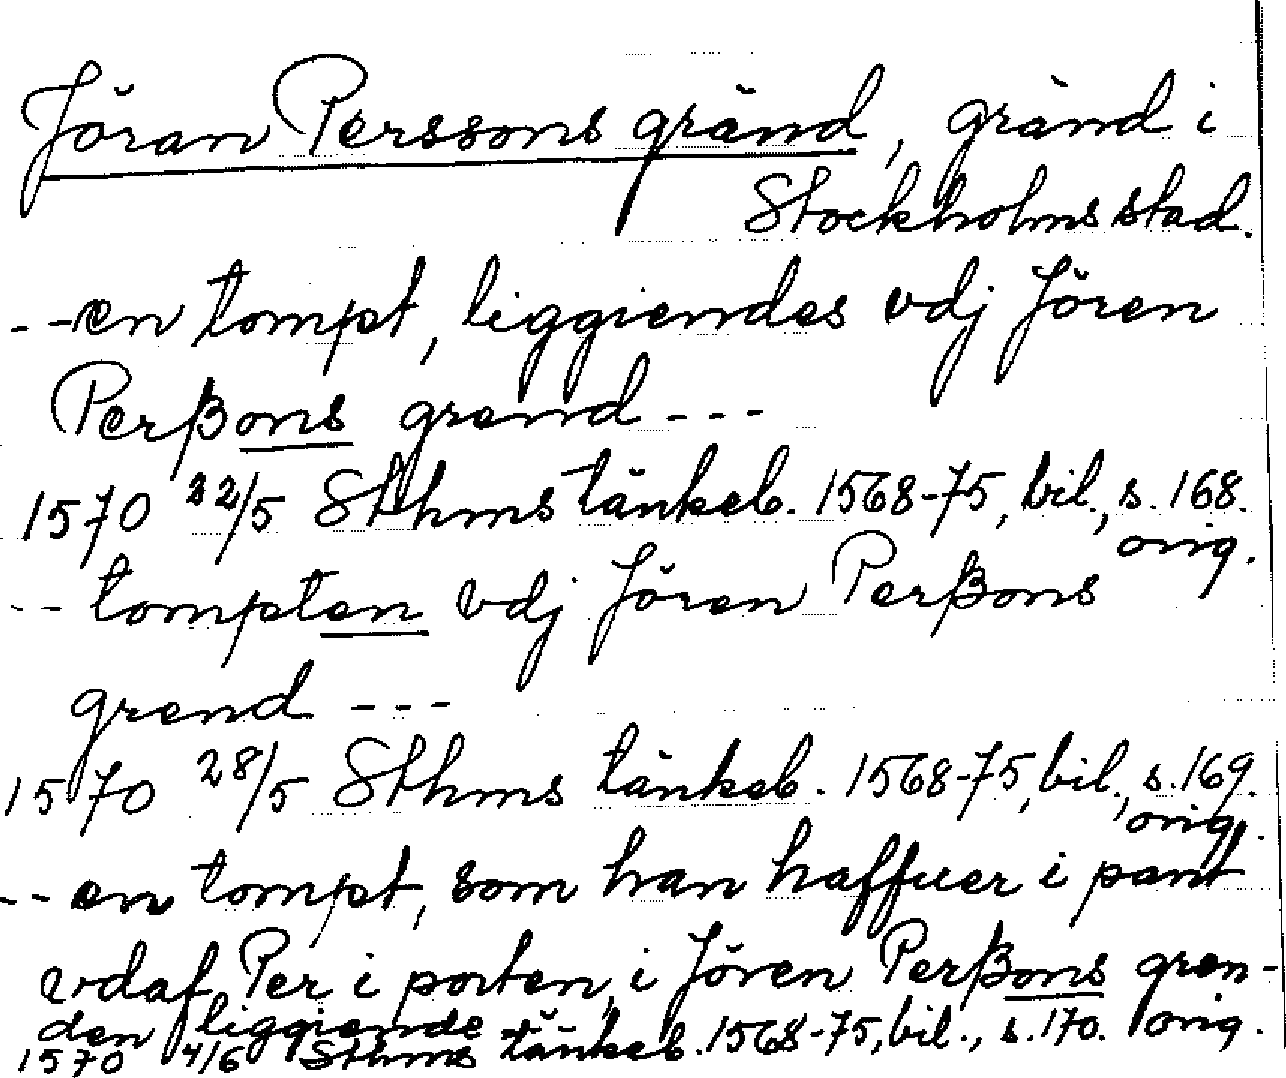 Jöran Perssons gränd, gränd i
Stockholms stad.
--en tompt, liggiendes vdj Jören
Perßons grend---
1570 22/5 Sthms tänkeb. 1568-75, bil., s. 168.
orig.
-- tompten vdj Jören Perßons
grend ---
1570 28/5 Sthms tänkeb. 1568-75, bil., s. 169.
orig.
-- en tompt, som han haffuer i pant
vdaf Per i porten, i Jören Perßons gren-
den liggiende
1570 4/6 Sthms tänkeb. 1568-75, bil., s. 170. orig.